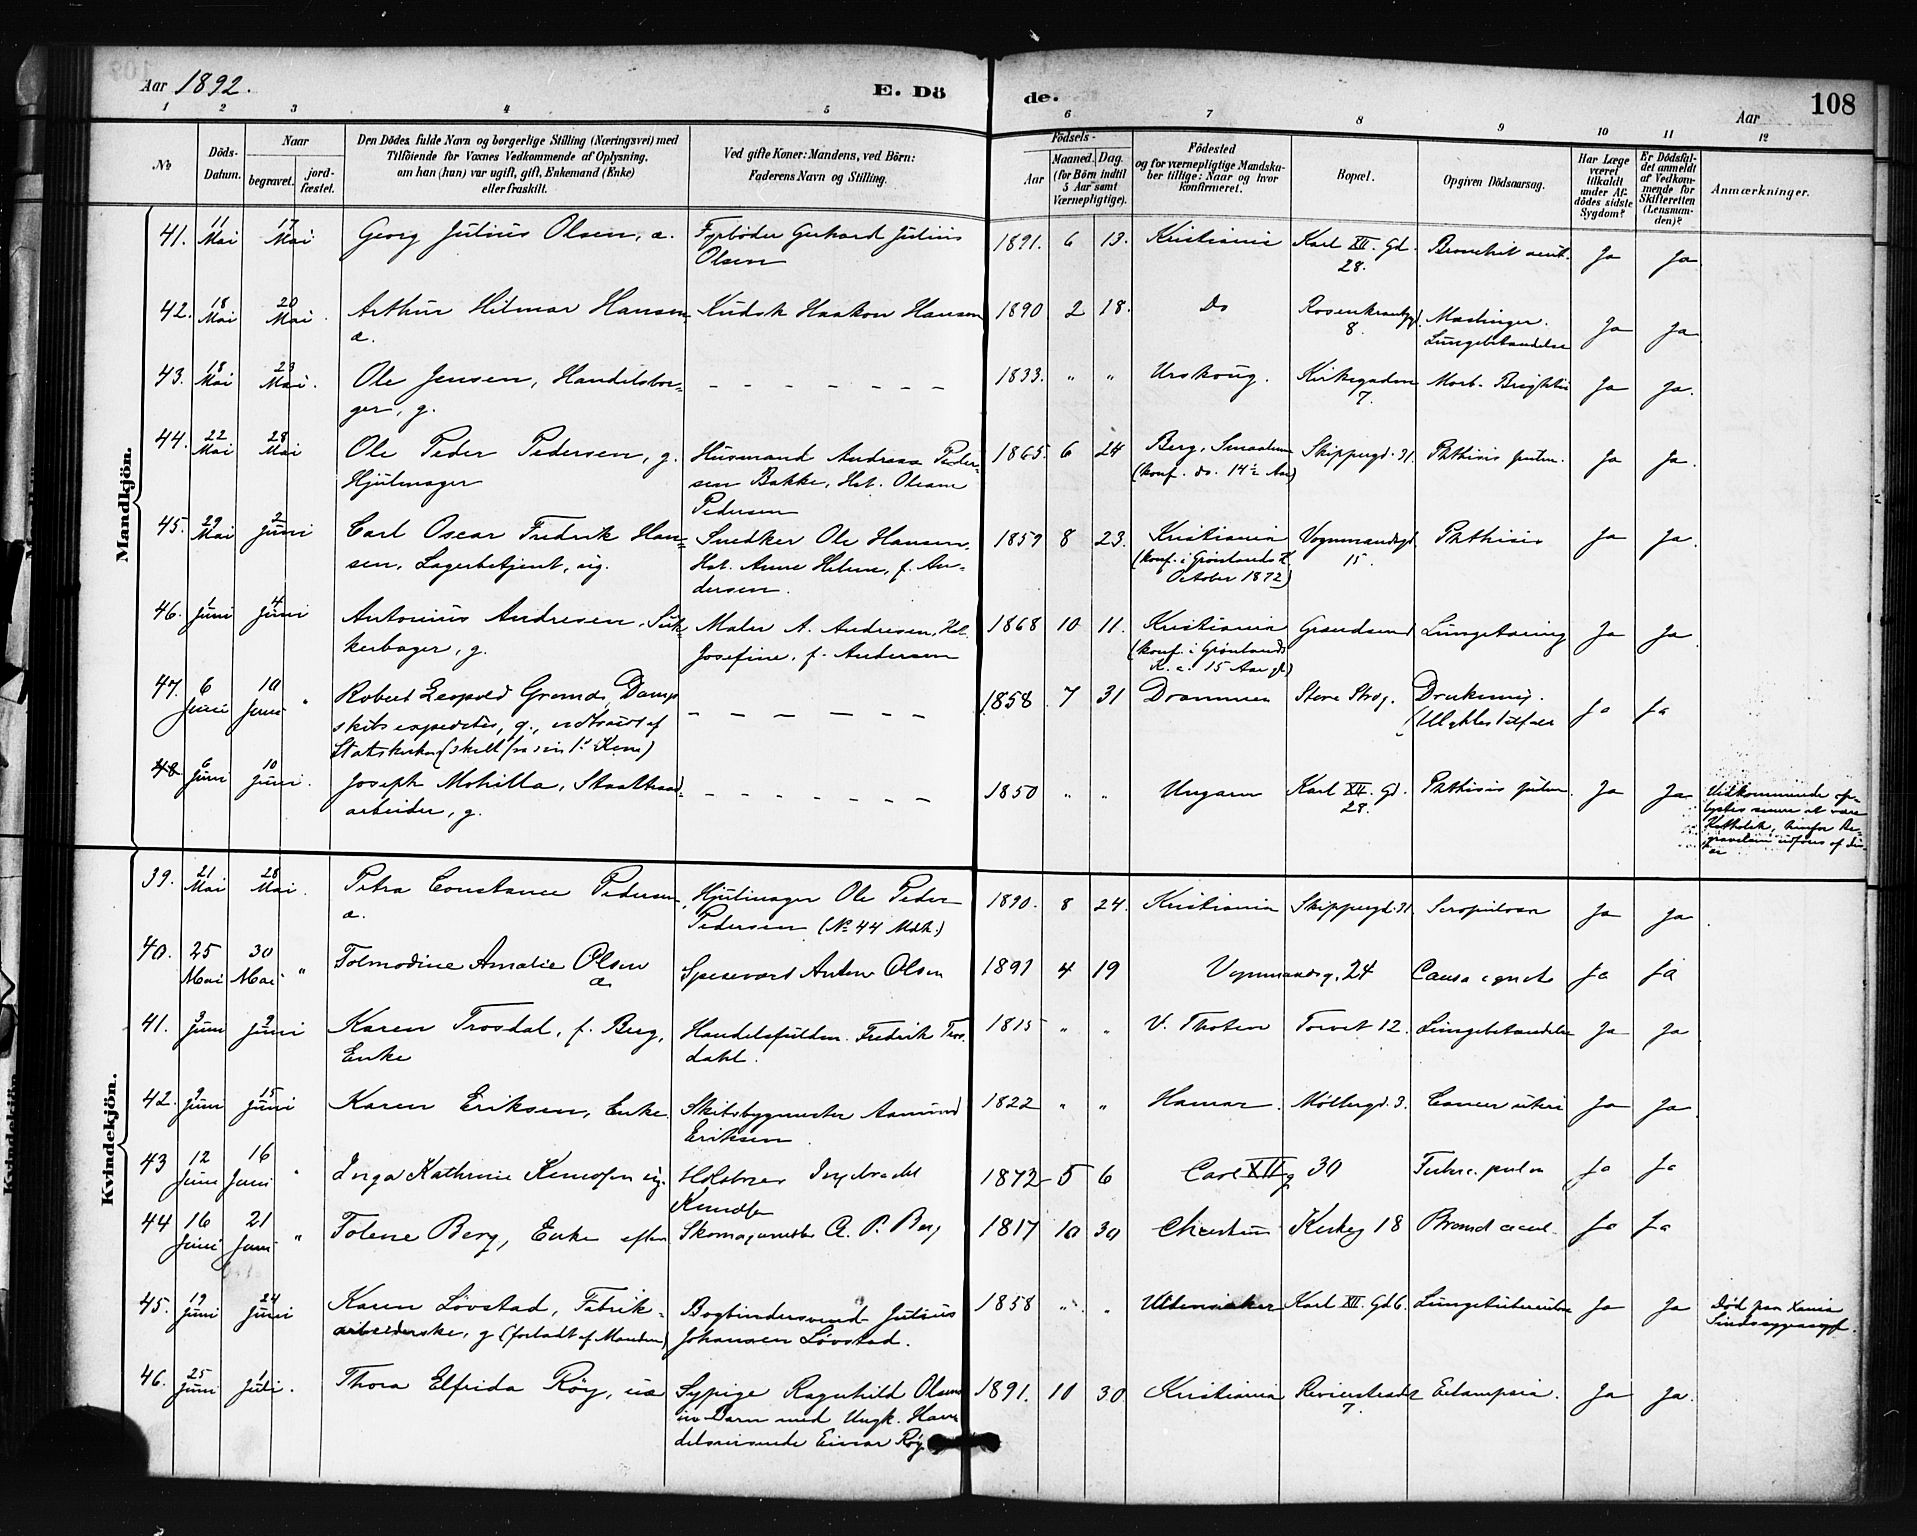 Aar 1892.
E. Dö de.
Aar
108
1 2 3 4 5 6 7 8 9 10 11 12
No
Döds-
Datum.
Naar
begravet.
jord-
fæstet.
Den Dödes fulde Navn og borgerlige Stilling (Næringsvei) med
Tilföiende for Voxnes Vedkommende af Oplysning,
om han (hun) var ugift, gift, Enkemand (Enke)
eller fraskilt.
Ved gifte Koner: Mandens, ved Börn:
Faderens Navn og Stilling.
Födsels-
Aar
Maaned. Dag.
(for Börn indtil
5 Aar samt
Værnepligtige).
Födested
og for værnepligtige Mandska-
ber tillige: Naar og hvor
konfirmeret.
Bopæl.
Opgiven Dödsaarsag.
Har Læge
været
tilkaldt
under Af-
dödes sidste
Sygdom?
Er Dödsfal-
det anmeldt
af Vedkom-
mende for
Skifteretten
(Lensman-
den)?
Anmærkninger.
Mandkjön.
41. 11 Mai 17 Mai Georg Julius Olsen, a. Fyrböder Gerhard Julius
Olsen
1891. 6 13. Kristiania Karl XII. Gd.
28.
Bronchit acut. Ja Ja
42. 18 Mai 20 Mai. Arthur Hilmar Hansen
a.
Kudsk Haakon Hansen 1890 2 18. Do Rosenkrantzgd.
8.
Mæslinger.
Lungebetændelse
Ja Ja
43. 18 Mai 23 Mai. Ole Jensen, Handelsbor-
ger, g.
- - - - - - - 1833. " " Urskoug. Kirkegaden
7.
Morb. Brightii Ja Ja.
44. 22 Mai 28 Mai Ole Peder Pedersen, g.
Hjulmager
Husmand Andreas Peder-
sen Bakke, Hst. Oleane
Pedersen
1865. 6 24 Berg, Smaalen
(konf. do. 14½ Aar)
Skippergd. 31. Phthisis pulm. Ja Ja.
45. 29 Mai 2 Juni Carl Oscar Fredrik Han-
sen, Lagerbetjent, ug.
Snedker Ole Hansen,
Hst. Anne Helene, f. An-
dersen.
1857 8 23. Kristiania
(konf. i Grønlands K.
October 1872)
Vognmandsgd.
15.
Phthisis Ja Ja.
46. 1 Juni 4 Juni Antonius Andresen, Suk-
kerbager, g.
Maler A. Andresen, Hst.
Josefine, f. Andersen
1868 10 11. Kristiania
(konf. i Grønlands
K. c. 15 Aar gl.)
Lungetæring Ja Ja.
47. 6 Juni 10 Juni " Robert Leopold Damp-
skibsexpeditør, g., udtraadt af
Statskirken (skilt fra sin 1ste Kone)
- - - - - - 1858 7 31 Drammen Store Strdg.
Drukning.
(Ulykkestilfælde
Ja Ja
48 6 Juni 10 Juni. Joseph Mohilla, Staaltraad-
arbeider, g.
- - - - - - - 1850 " " Ungarn Karl XII. Gd.
28.
Phthisis pulm. Ja Ja Vedkommende op-
lystes senere at være
Katholik, hvorfor Be-
gravelsen udføres af
Kvindekjön.
39. 21 Mai 28 Mai. Petra Constance Pedersen,
a.
Hjulmager Ole Peder
Pedersen (No 44 Mdk.)
1890. 8 24. Kristiania Skippergd. 31. Ja Ja
40. 25 Mai 30 Mai " Tolmodine Amalie Olsen
a.
Spisevært Anton Olsen 1891 4 19 Vognmandsg. 24 Causa ignota Ja Ja
41. 3 Juni 9 Juni Karen Trosdal, f. Berg,
Enke
Handelsfuldm. Fredrik Tros-
dahl.
1815 " " V. Thoten Torvet 12. Lungebetændelse Ja Ja
42. 9 Juni 15 Juni Karen Eriksen, Enke. Skibsbygmester Aamund
Eriksen.
1822 " " Hamar. Möllergd. 3. Cancer uteri Ja Ja.
43 12 Juni 16 Juni " Inga Kathrine Knudsen ug. Ingebrecht
Knudsen
1872 5 6 Carl XIIg 30 Tuberc. pulm Ja Ja
44 16 Juni 21 Juni " Tolene Berg, Enke efter Skomagermester A. P. Berg 1817 10 30 Kirkeg 18 Ja Ja
45. 19 Juni 24 Juni Karen Lövstad, Fabrik-
arbeiderske, g (forladt af Manden)
Bogbindersvend Julius
Johansen Løvstad.
1858 " " Ullensaker Karl XII. Gd 6. Lungetuberculose Ja Ja Död paa Xania
Sindssygeasyl.
46. 25 Juni 1 Juli. Thora Elfrida Röy, ua Sypige Ragnhild Olsens
uæ. Barn med Ungk. Han-
delsreisende Einar Röy
1891. 11 30 Kristiania Revierstrædet
7.
Eclampsia. Ja Ja.